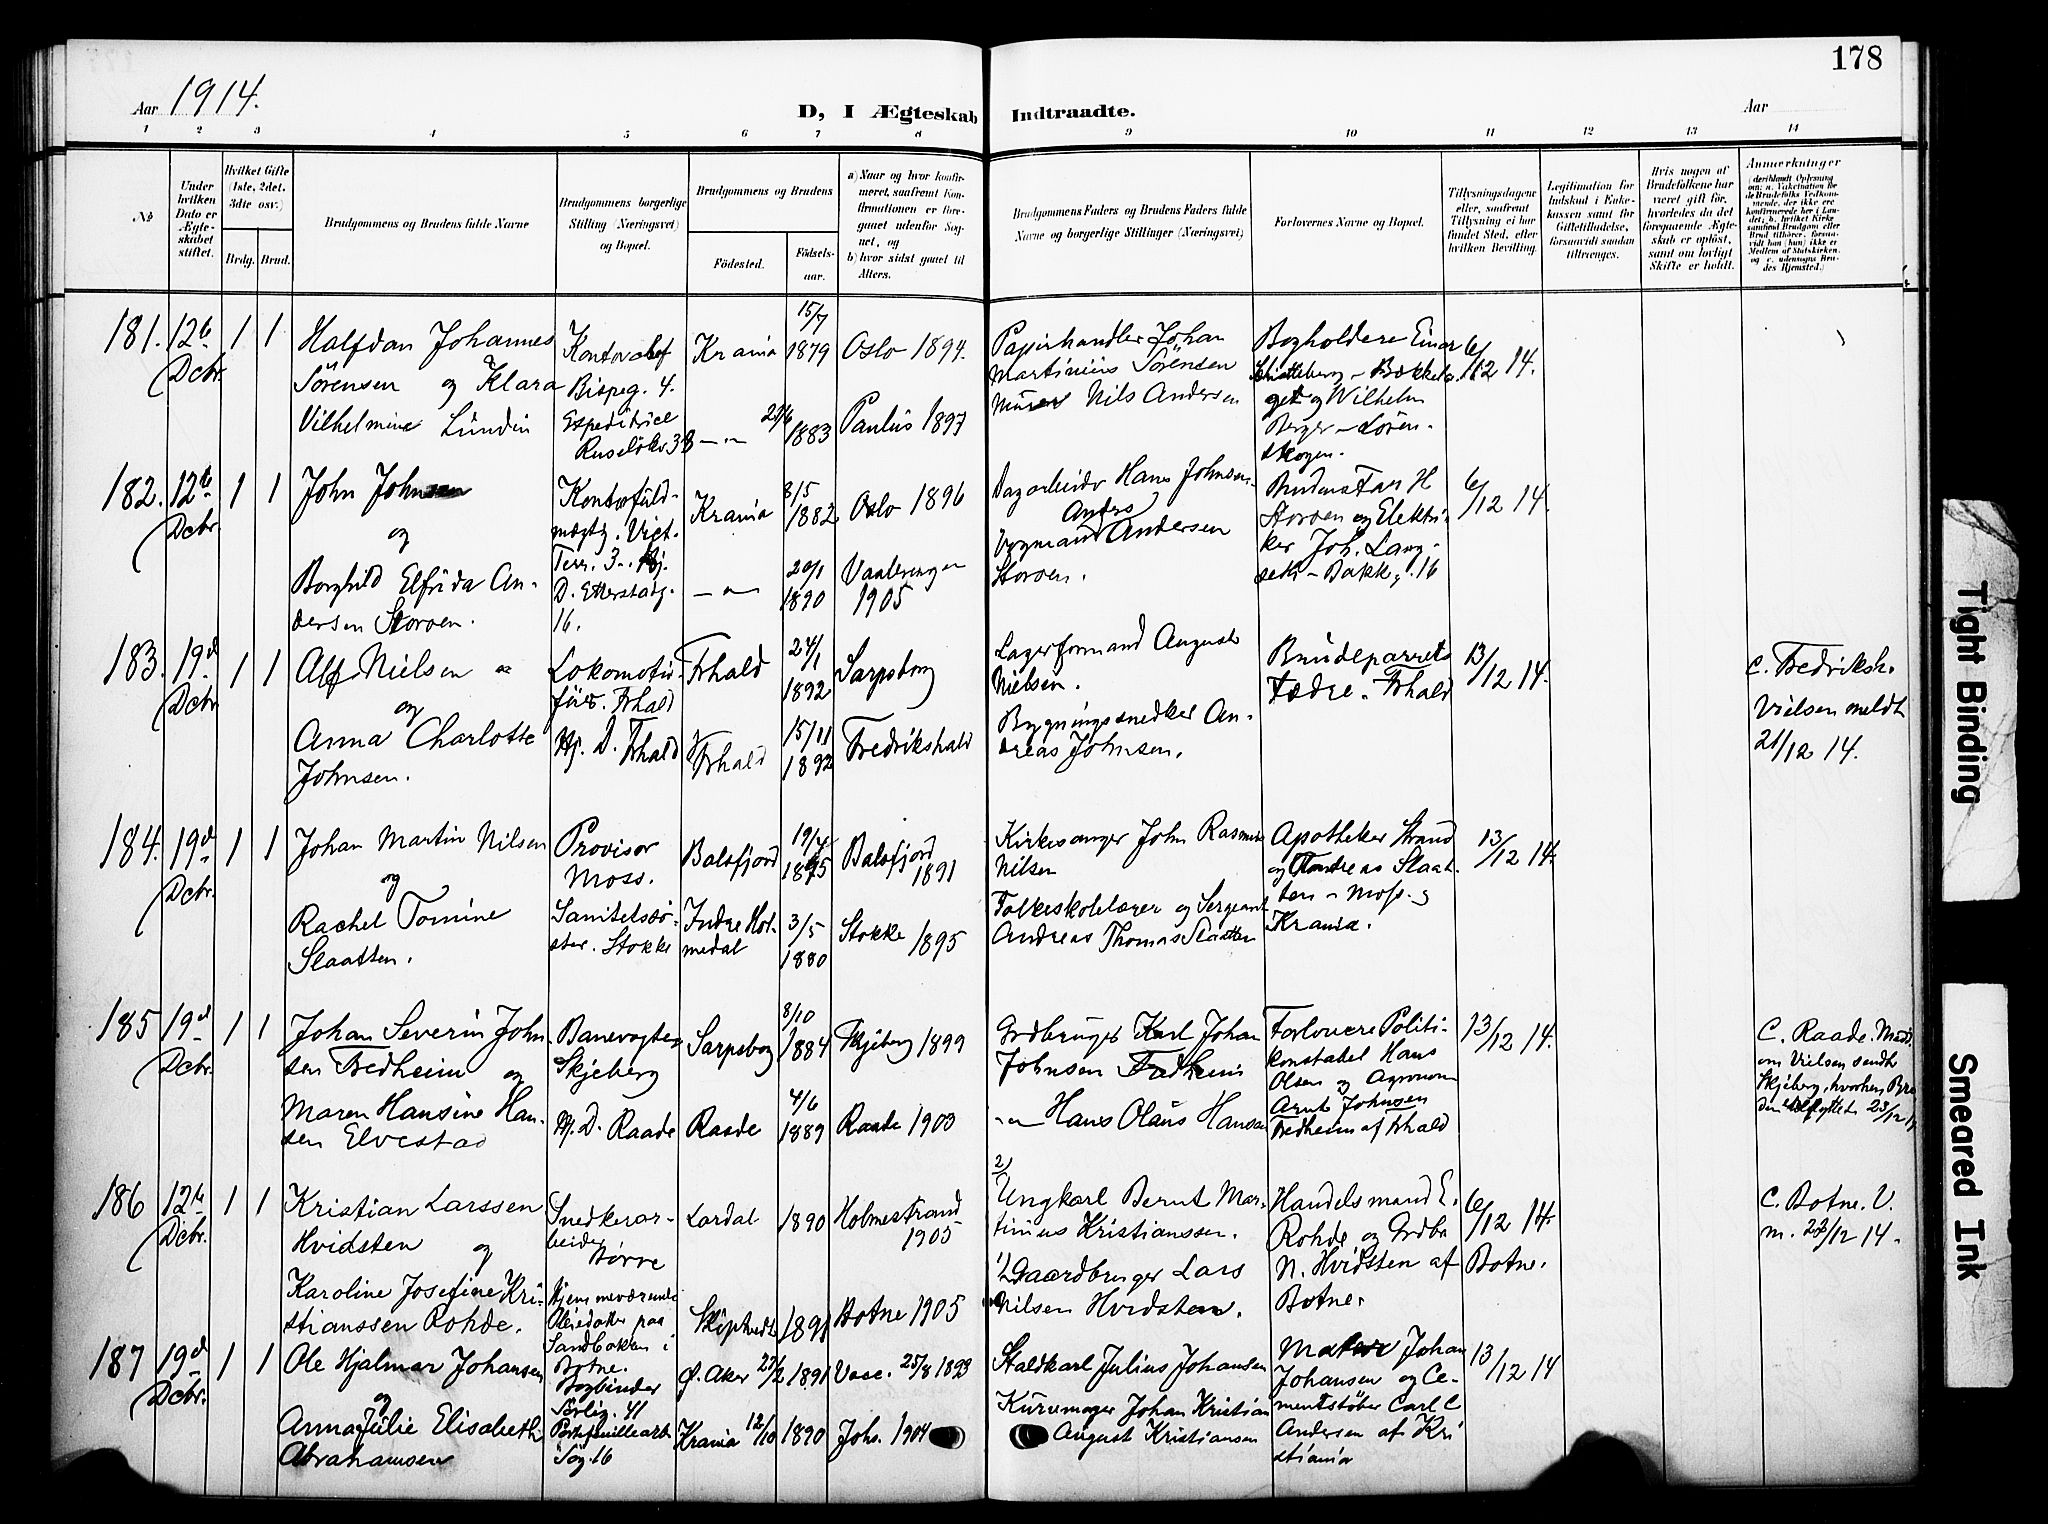 178
Aar 1914.
D, I Ægteskab Indtraadte.
Aar
1 2 3 4 5 6 7 8 9 10 11 12 13 14
No
Under hvilken Dato er Ægteskabet stiftet.
Hvilket Gifte (1ste, 2det, 3die osv.)
Brdg. Brud.
Brudgommens og Brudens fulde Navne
Brudgommens borgerlige Stilling (Næringsvei) og Bopæl.
Brudgommens og Brudens
Fødested. Fødsels-aar.
a) Naar og hvor konfirmeret, saafremt Konfirmationen er foregaaet udenfor Sognet, og
b) hvor sidst gaaet til Alters.
Brudgommens Faders og Brudens Faders fulde Navne og borgerlige Stillinger (Næringsvei)
Forlovernes Navne og Bopæl.
Tillysningsdagene eller, saafremt Tillysning ei har fundet Sted, efter hvilken Bevilling.
Legitimation for Indskud i Enkekassen samt for Giftetilladelse, forsaavidt saadan tiltrænges.
Hvis nogen af Brudefolkene har været gift før, hvorledes da det foregaaende Ægteskab er opløst, samt om lovligt Skifte er holdt.
Anmerkninger
181. 12te Dcbr. 1 1
Halfdan Johannes
Sörensen og Klara
Vilhelmine Lundin
Kontorchef
Bispeg. 4.
Expeditrice
Ruselökv 38
Krania 15/7 1879 Oslo 1894.
— " — 29/6 1883 Paulus 1897
Papirhandler Johan
Martinius Sörensen
Murer Nils Andersen
Bogholdere Einar
get og Wilhelm
Berger – Lören-
skogen.
6/12 14.
182. 12te Dcbr. 1 1
John Johnsen
og
Borghild Elfrida An-
dersen Storoen.
Kontorfuld-
mægtg. Vigt.
Terr. 3. Hj.
D. Etterstadg.
16.
Krania 8/5 1882 Oslo 1896
— " — 20/1 1890 Vaalerengen 1905
Dagarbeider Hans Johnsen
Anders
Andersen
Storoen.
Brudens Far H
Storoen og Elektri-
ker Joh. Lang-
seth – Bakkg. 16
6/12 14.
183. 19d Dcbr 1 1
Alf Nielsen
og
Anna Charlotte
Johnsen.
Lokomotiv-
fürer. Frhald
Hj. D. Frhald
Frhald 24/1 1892 Sarpsborg
Frhald 15/11 1892 Fredrikshald
Lagerformand August
Nielsen.
Bygningssnedker An-
dreas Johnsen.
Brudeparrets
Fædre. Frhald
13/12 14.
c. Fredriksh.
Vielsen meldt
21/12 14.
184. 19d Dcbr. 1 1
Johan Martin Nilsen
og
Rachel Tomine
Slaatten.
Provisor
Moss.
Sanitetssö-
ster. Stokke
Balsfjord 19/4 1875 Balsfjord 1891
Indre Hol-
medal 3/5 1880 Stokke 1895
Kirkesanger John Rasmus
Nilsen
Folkeskolelærer og Sergeant
Andreas Thomas Slaatten
Apotheker Strand
og Andreas Slaat-
ten – Moss og
Krania.
13/12 14.
185 19d Dcbr. 1 1
Johan Severin John
sen Fredheim og
Maren Hansine Han-
sen Elvestad
Banevogter
Skjeberg
Hj. D. Raade
Sarpsborg 8/10 1884 Skjeberg 1899
Raade 4/6 1889 Raade 1903
Grdbruger Karl Johan
Johnsen Fredheim
— " — Hans Olaus Hansen
Forlovere Politi-
konstabel Hans
Olsen og Agronom
Arnt Johnsen
Fredheim af Frhald
13/12 14.
C. Raade. Medd.
om Vielsen sendt
Skjeberg, hvorhen Bru
den tilflyttet 23/12 14
186 12te Dcbr. 1 1
Kristian Larssen
Hvidsten og
Karoline Josefine Kri-
stianssen Rohde.
Snedkerar-
beider
Börre
Hjemmeværende
Pleiedatter paa
Sandbakken i
Botne.
Lardal 1890 Holmestrand 1905
Skiptvedt 1891 Botne 1905
2) Ungkarl Bernt Mar-
tinius Kristianssen.
1) Gaardbruger Lars
Nilsen Hvidsten.
Handelsmand E.
Rohde og Grdbr
N. Hvidsten af
Botne.
6/12 14.
Botne.
C. Botne. V.
m. 23/12 14.
187 19d Dcbr. 1 1
Ole Hjalmar Johansen
og
Anna Julie Elisabeth
Abrahamsen
Bogbinder
Sörlig. 41
Portefeuillearb.
Sög. 16
Ø. Aker 27/2 1891 Vase.
Krania 12/10 1890 Johs. 1904
Staldkarl Julius Johansen
Kurvmager Johan Kristian
August Kristiansen
Johan
Johansen og Ce-
mentstøber Carl C
Andersen af Kri
stiania
13/12 14
Tight Binding
Smeared Ink